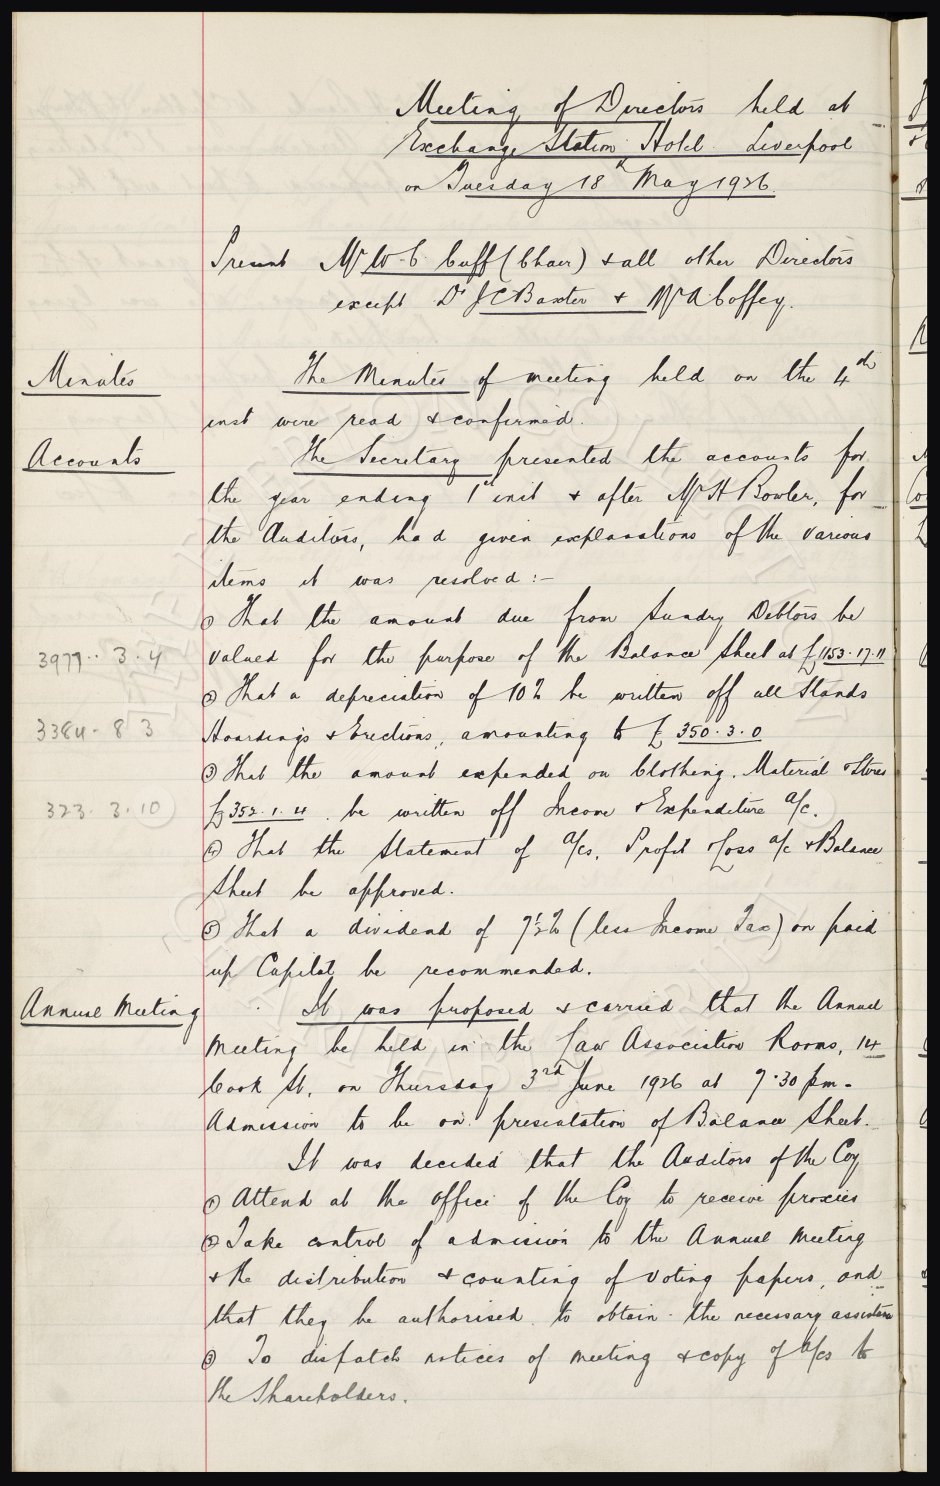 Meeting of Directors held at
Exchange Station Hotel Liverpool
on Tuesday 18th May 1926.
Present Mr W.C. Cuff (Chair) & all other Directors
except Dr J C Baxter & Mr A Coffey.
Minutes
The Minutes of meeting held on the 4th
inst were read & confirmed.
Accounts
The Secretary presented the accounts for
the year ending 1st inst & after Mr H Bowler, for
the Auditors, had given explanations of the various
items it was resolved:-
① That the amount due from Sundry Debtors be
3977.. 3. 4
valued for the purpose of the Balance Sheet at £1153.17.11
② That a depreciation of 10% be written off all Stands
3384. 8 3
Hoardings & Erections, amounting to £350.3.0
③ That the amount expended on Clothing, Material & Stores
323. 3. 10
£352.1.4. be written off Income & Expenditure a/c.
④ That the Statement of a/cs, Profit & Loss a/c & Balance
Sheet be approved.
⑤ That a dividend of 7½% (less Income Tax) on paid
up Capital be recommended.
Annual Meeting
It was proposed & carried that the Annual
Meeting be held in the Law Association Rooms, 14
Cook St, on Thursday 3rd June 1926 at 7.30 pm.
Admission to be on presentation of Balance Sheet.
It was decided that the Auditors of the Coy
① Attend at the office of the Coy to receive proxies
② Take control of admission to the Annual Meeting
& the distribution & counting of voting papers, and
that they be authorised to obtain the necessary assistance
③ To dispatch notices of meeting & copy of a/cs to
the Shareholders.